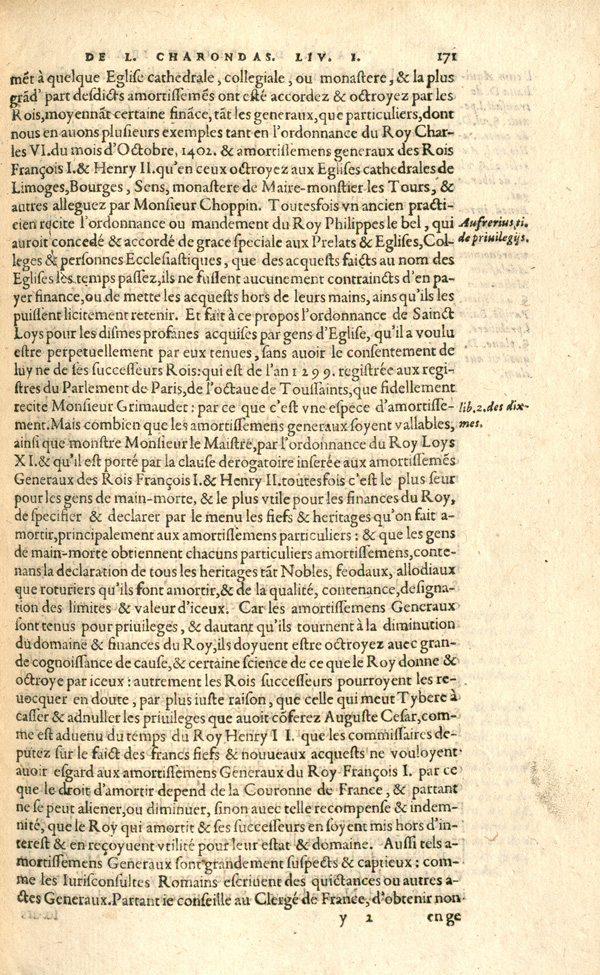 DE L. CHARONDAS. LIV. I. 171
mēt à quelque Eglise cathedrale, collegiale, ou monastere, & la plus
grād' part desdicts amortissemēs ont esté accordez & octroyez par les
Rois, moyennāt certaine fināce, tāt les generaux, que particuliers, dont
nous en auons plusieurs exemples tant en l'ordonnance du Roy Char-
les VI. du mois d'Octobre, 1402. & amortissemens generaux des Rois
François I. & Henry II. qu'en ceux octroyez aux Eglises cathedrales de
Limoges, Bourges, Sens, monastere de Maire-monstier les Tours, &
autres alleguez par Monsieur Choppin. Toutesfois vn ancien practi-
cien recite l'ordonnance ou mandement du Roy Philippes le bel, qui
auroit concedé & accordé de grace speciale aux Prelats & Eglises, Col-
leges & personnes Ecclesiastiques, que des acquests faicts au nom des
Eglises lès temps passez, ils ne fussent aucunement contraincts d'en pa-
yer finance, ou de mette les acquests hors de leurs mains, ains qu'ils les
puissent licitement retenir. Et fait à ce propos l'ordonnance de Sainct
Loys pour les dismes profanes acquises par gens d'Eglise, qu'il a voulu
estre perpetuellement par eux tenues, sans auoir le consentement de
luy ne de ses successeurs Rois: qui est de l'an 1299. registrée aux regi-
stres du Parlement de Paris, de l'octaue de Toussaints, que fidellement
recite Monsieur Grimaudet: par ce que c'est vne espece d'amortisse-
ment. Mais combien que les amortissemens generaux soyent vallables,
ainsi que monstre Monsieur le Maistre, par l'ordonnance du Roy Loys
XI. & qu'il est porté par la clause derogatoire inserée aux amortissemēs
Generaux des Rois François I. & Henry II. toutesfois c'est le plus seur
pour les gens de main-morte, & le plus vtile pour les finances du Roy,
de specifier & declarer par le menu les fiefs & heritages qu'on fait a-
mortir, principalement aux amortissemens particuliers: & que les gens
de main-morte obtiennent chacuns particuliers amortissemens, conte-
nans la declaration de tous les heritages tāt Nobles, feodaux, allodiaux
que roturiers qu'ils font amortir, & de la qualité, contenance, designa-
tion des limites & valeur d'iceux. Car les amortissemens Generaux
sont tenus pour priuileges, & dautant qu'ils tournent à la diminution
du domaine & finances du Roy, ils doyuent estre octroyez auec gran-
de cognoissance de cause, & certaine science de ce que le Roy donne &
octroye par iceux: autrement les Rois successeurs pourroyent les re-
uocquer en doute, par plus iuste raison, que celle qui meut Tybere à
casser & adnuller les priuileges que auoit cōferez Auguste Cesar, com-
me est aduenu du temps du Roy Henry I I. que les commissaires de-
putez sur le faict des francs fiefs & nouueaux acquests ne vouloyent
auoir esgard aux amortissemens Generaux du Roy François I. par ce
que le droit d'amortir depend de la Couronne de France, & partant
ne se peut aliener, ou diminuer, sinon auec telle recompense & indem-
nité, que le Roy qui amortit & ses successeurs en soyent mis hors d'in-
terest & en reçoyuent vtilité pour leur estat & domaine. Aussi tels a-
mortissemens Generaux sont grandement suspects & captieux: com-
me les Iurisconsultes Romains escriuent des quictances ou autres a-
ctes Generaux. Partant ie conseille au Clergé de France, d'obtenir non
y 2 en ge
Aufrerius, ti.
de priuilegijs.
lib. 2. des dix-
mes.